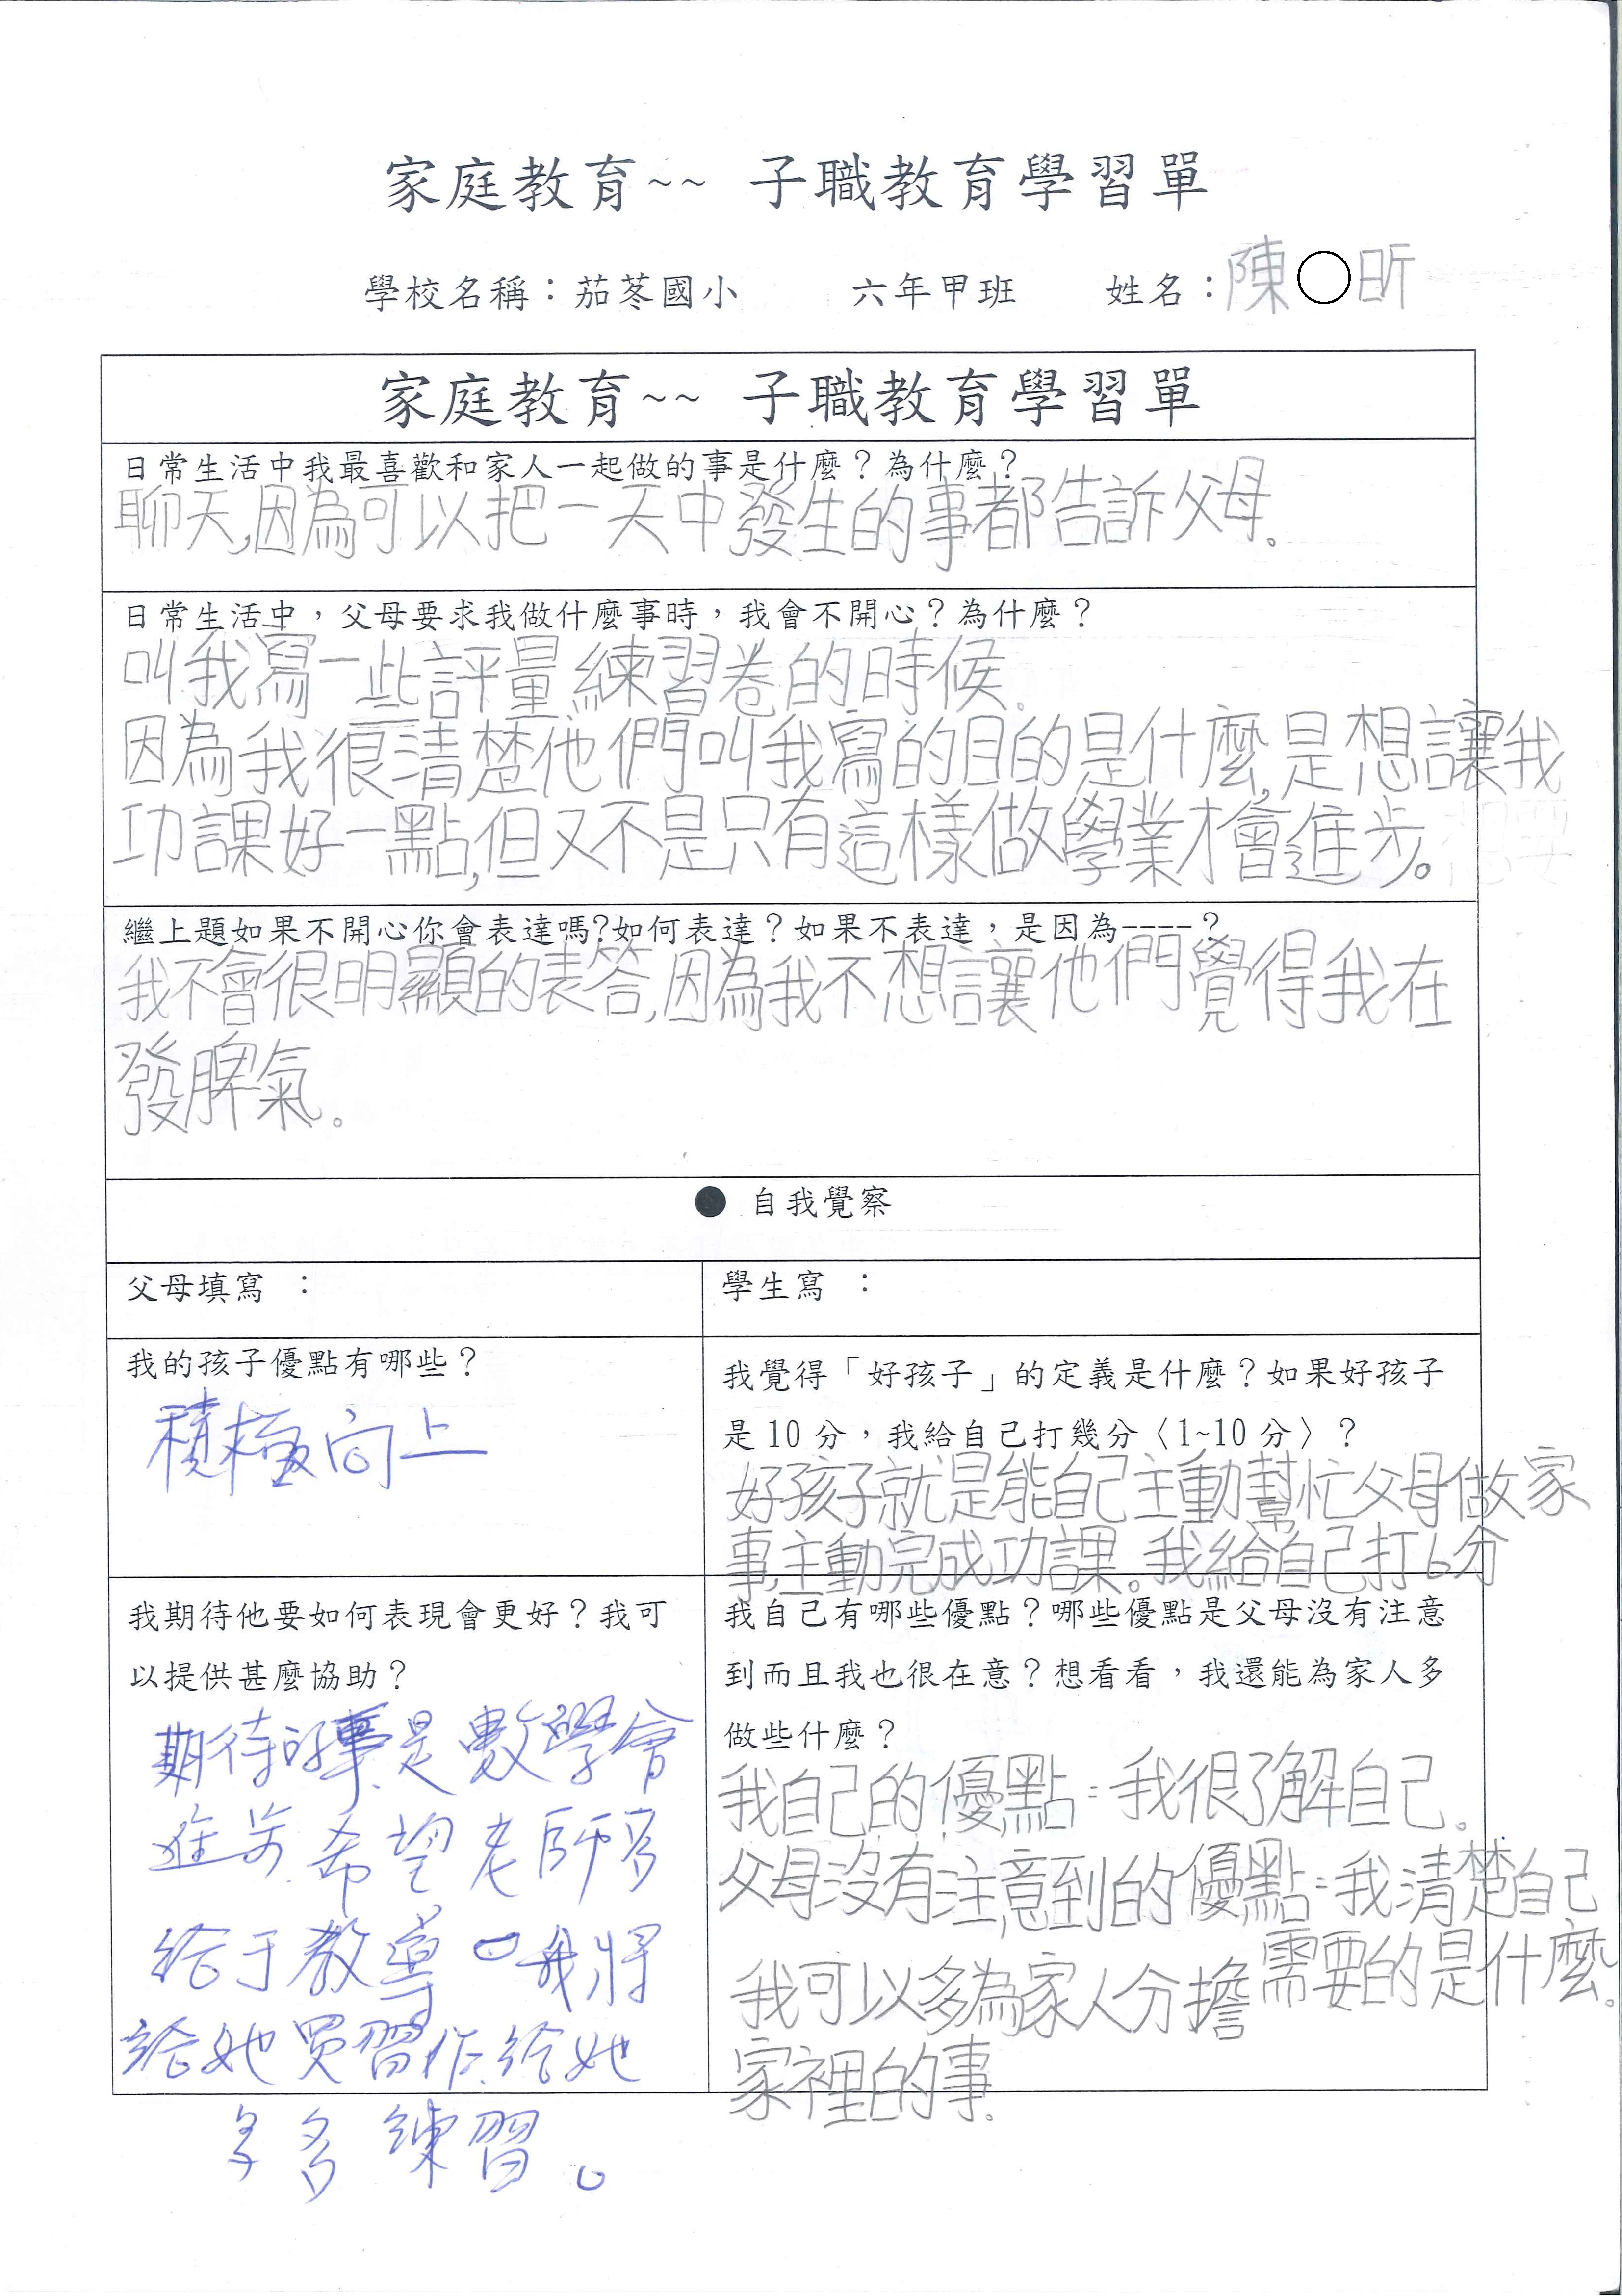 家庭教育~~ 子職教育學習單
學校名稱：茄苳國小 六年甲班 姓名：陳○昕
家庭教育~~ 子職教育學習單
日常生活中我最喜歡和家人一起做的事是什麼？為什麼？
聊天,因為可以把一天中發生的事都告訴父母。
日常生活中，父母要求我做什麼事時，我會不開心？為什麼？
叫我寫一些評量練習卷的時候。
因為我很清楚他們叫我寫的目的是什麼,是想讓我
功課好一點,但又不是只有這樣做學業才會進步。
繼上題如果不開心你會表達嗎?如何表達？如果不表達，是因為----？
我不會很明顯的表答,因為我不想讓他們覺得我在
發脾氣。
● 自我覺察
父母填寫 ：
學生寫 ：
我的孩子優點有哪些？
積極向上
我覺得「好孩子」的定義是什麼？如果好孩子
是 10 分，我給自己打幾分〈1~10 分〉？
好孩子就是能自己主動幫忙父母做家
事,主動完成功課。我給自己打6分
我期待他要如何表現會更好？我可
以提供甚麼協助？
期待的事是數學會
進步.希望老師多
給于教導。我將
給她買習作.給她
多多練習。
我自己有哪些優點？哪些優點是父母沒有注意
到而且我也很在意？想看看，我還能為家人多
做些什麼？
我自己的優點：我很了解自己。
父母沒有注意到的優點：我清楚自己
需要的是什麼。
我可以多為家人分擔
家裡的事.